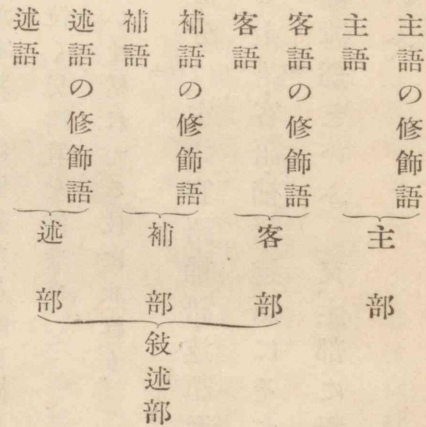 主語の修飾語
主語
主部
客語の修飾語
客語
客部
補語の修飾語
補語
補部
述語の修飾語
述語
述部
敍述部